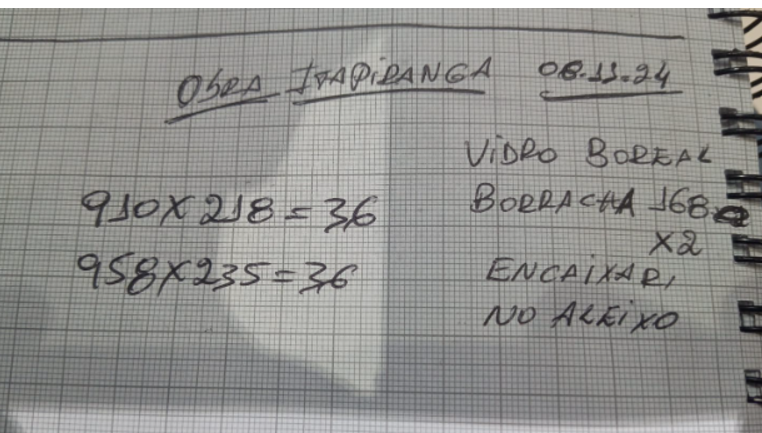 OBRA ITAPIRANGA 08.11.24
910X218=36
958X235=36
VIDRO BOREAL
BORRACHA 168
X2
ENCAIXAR
NO ALEIXO